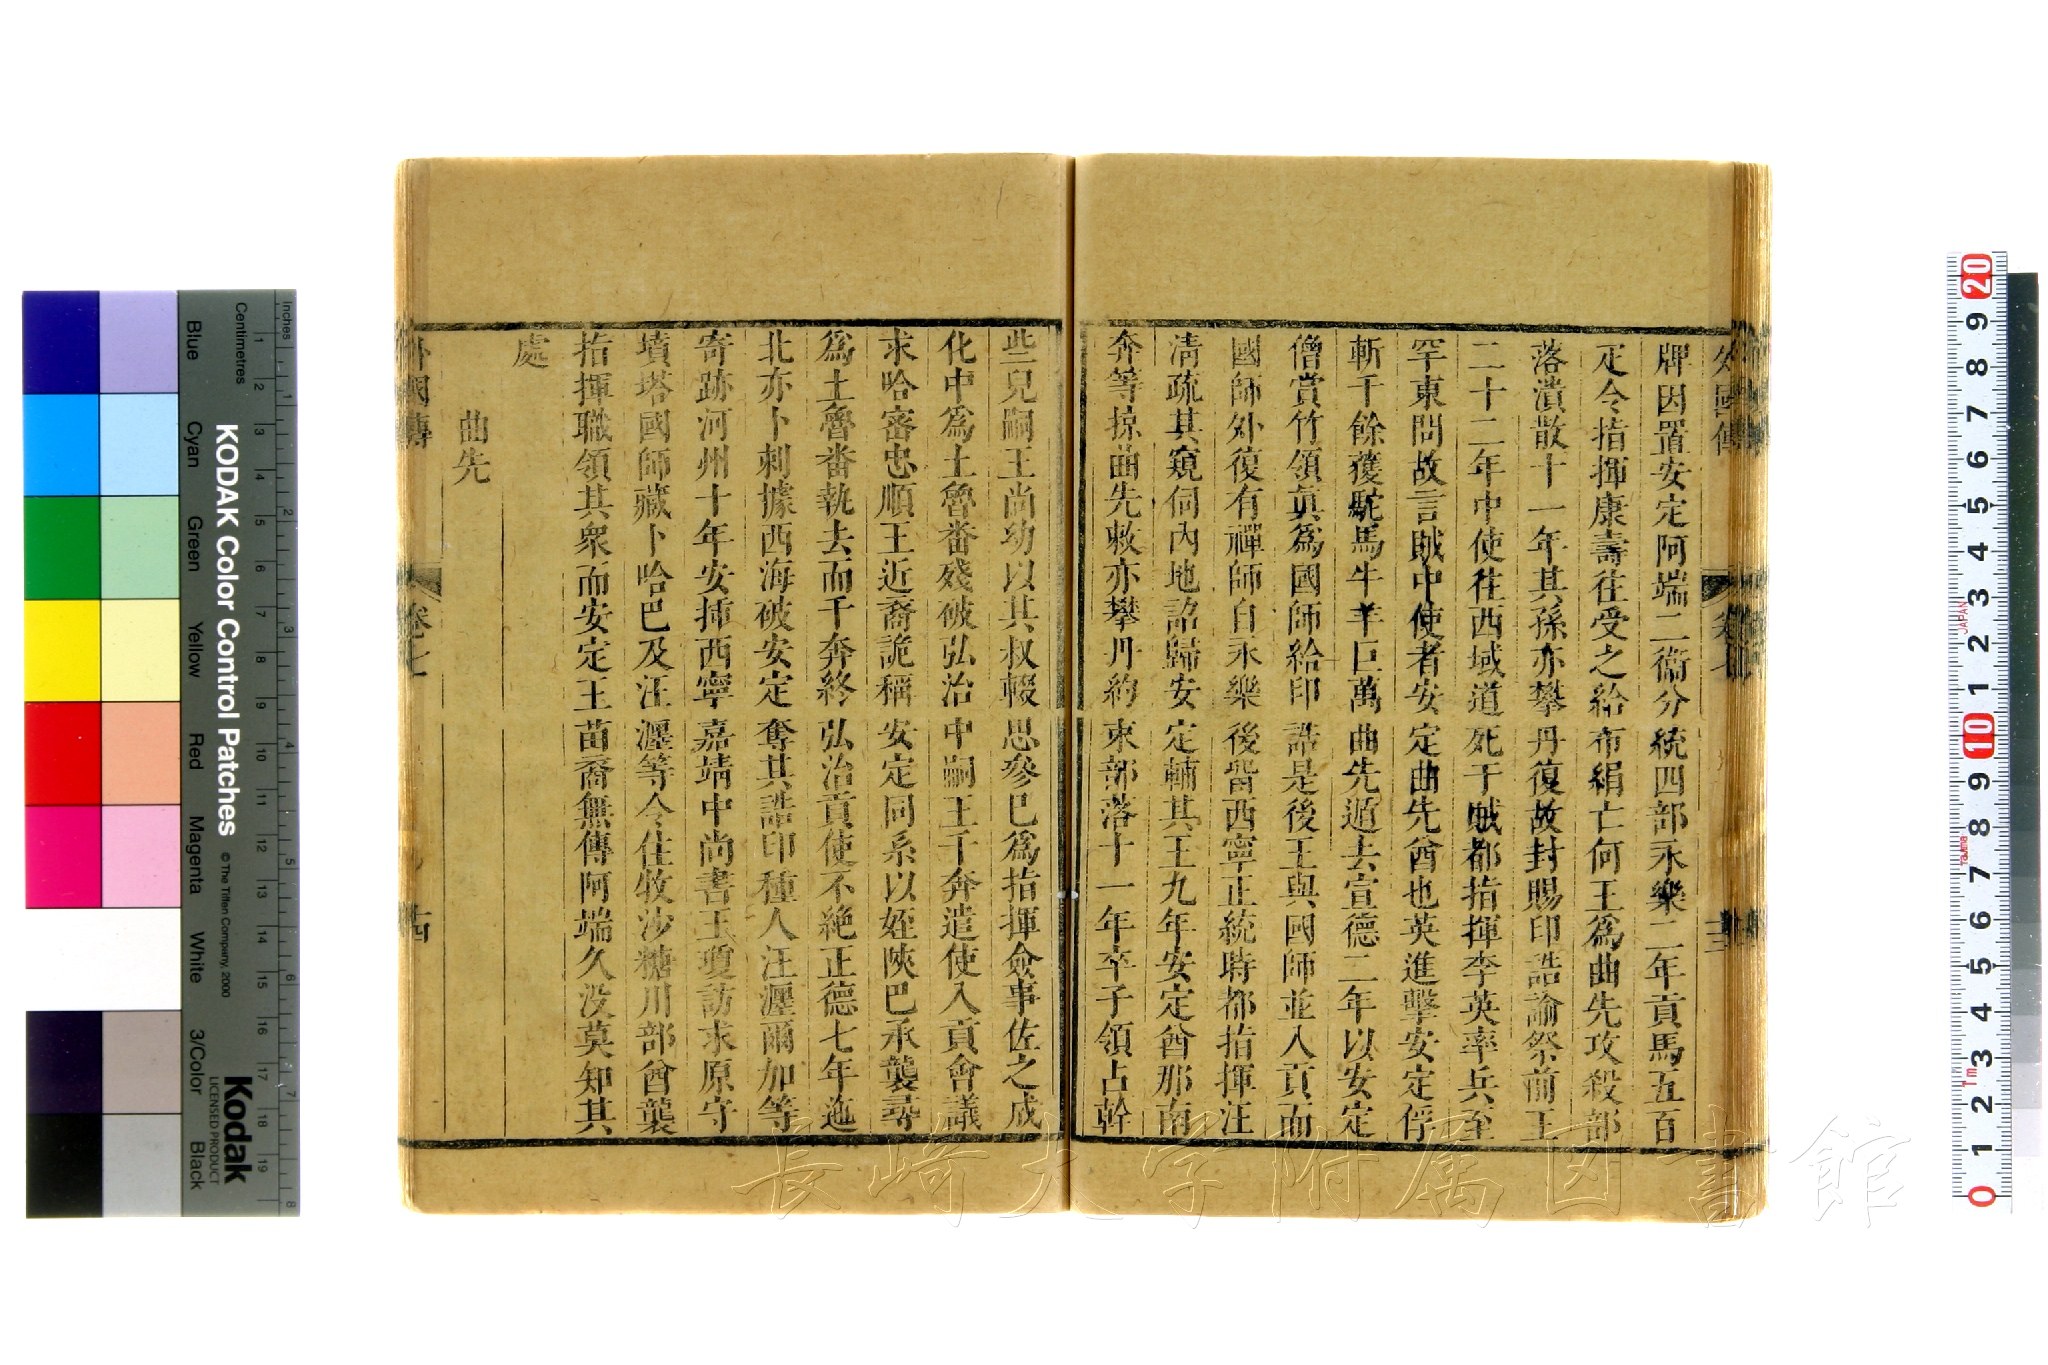 外國傳
卷七
牌因置安定阿端二衞分統四部永樂二年貢馬五百
疋令指揮康壽往受之給布絹亡何王爲曲先攻殺部
落潰散十一年其孫亦攀丹復故封賜印誥諭祭前王
二十二年中使往西域道死于賊都指揮李英率兵至
罕東問故言賊中使者安定曲先酋也英進擊安定俘
斬千餘獲駝馬牛羊巨萬曲先遁去宣德二年以安定
僧賞竹領眞爲國師給印誥是後王與國師並入貢而
國師外復有禪師自永樂後皆西寧正統時都指揮汪
淸疏其窺伺內地詔歸安定輔其王九年安定酋那南
奔等掠曲先敕亦攀丹約束部落十一年卒子領占幹
些兒嗣王尚幼以其叔輟思參巴爲指揮僉事佐之成
化中爲土魯番殘破弘治中嗣王千奔遣使入貢會議
求哈密忠順王近裔詭稱安定同系以姪陝巴承襲尋
爲土魯番執去而千奔終弘治貢使不絕正德七年迤
北亦卜剌據西海破安定奪其誥印種人汪瀣爾加等
寄跡河州十年安揷西寧嘉靖中尚書王瓊訪求原守
墳塔國師藏卜哈巴及汪瀣等令住牧沙糖川部酋襲
指揮職領其衆而安定王苗裔無傳阿端久没莫知其
處
曲先
外國傳
卷之七
古
長崎大学附属図書館
KODAK Color Control Patches
© The Tiffen Company, 2000
Kodak
LICENSED PRODUCT
Inches
Centimetres
Blue
Cyan
Green
Yellow
Red
Magenta
White
3/Color
Black
JAPAN
Tajima
Tm